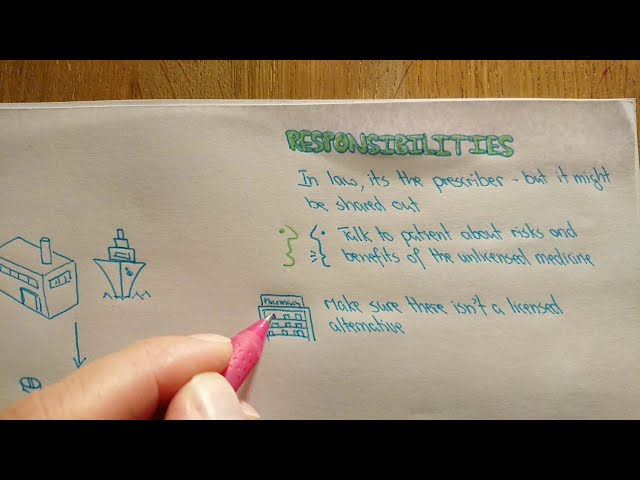 RESPONSIBILITIES
In law, it's the prescriber - but it might
be shared out
Talk to patient about risks and
benefits of the unlicensed medicine
Pharmacy
Make sure there isn't a licensed
alternative